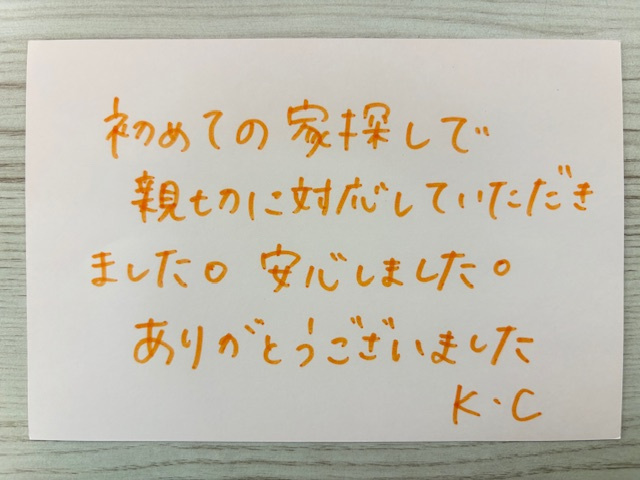 初めての家探しで
親切に対応していただき
ました。安心しました。
ありがとうございました
K・C